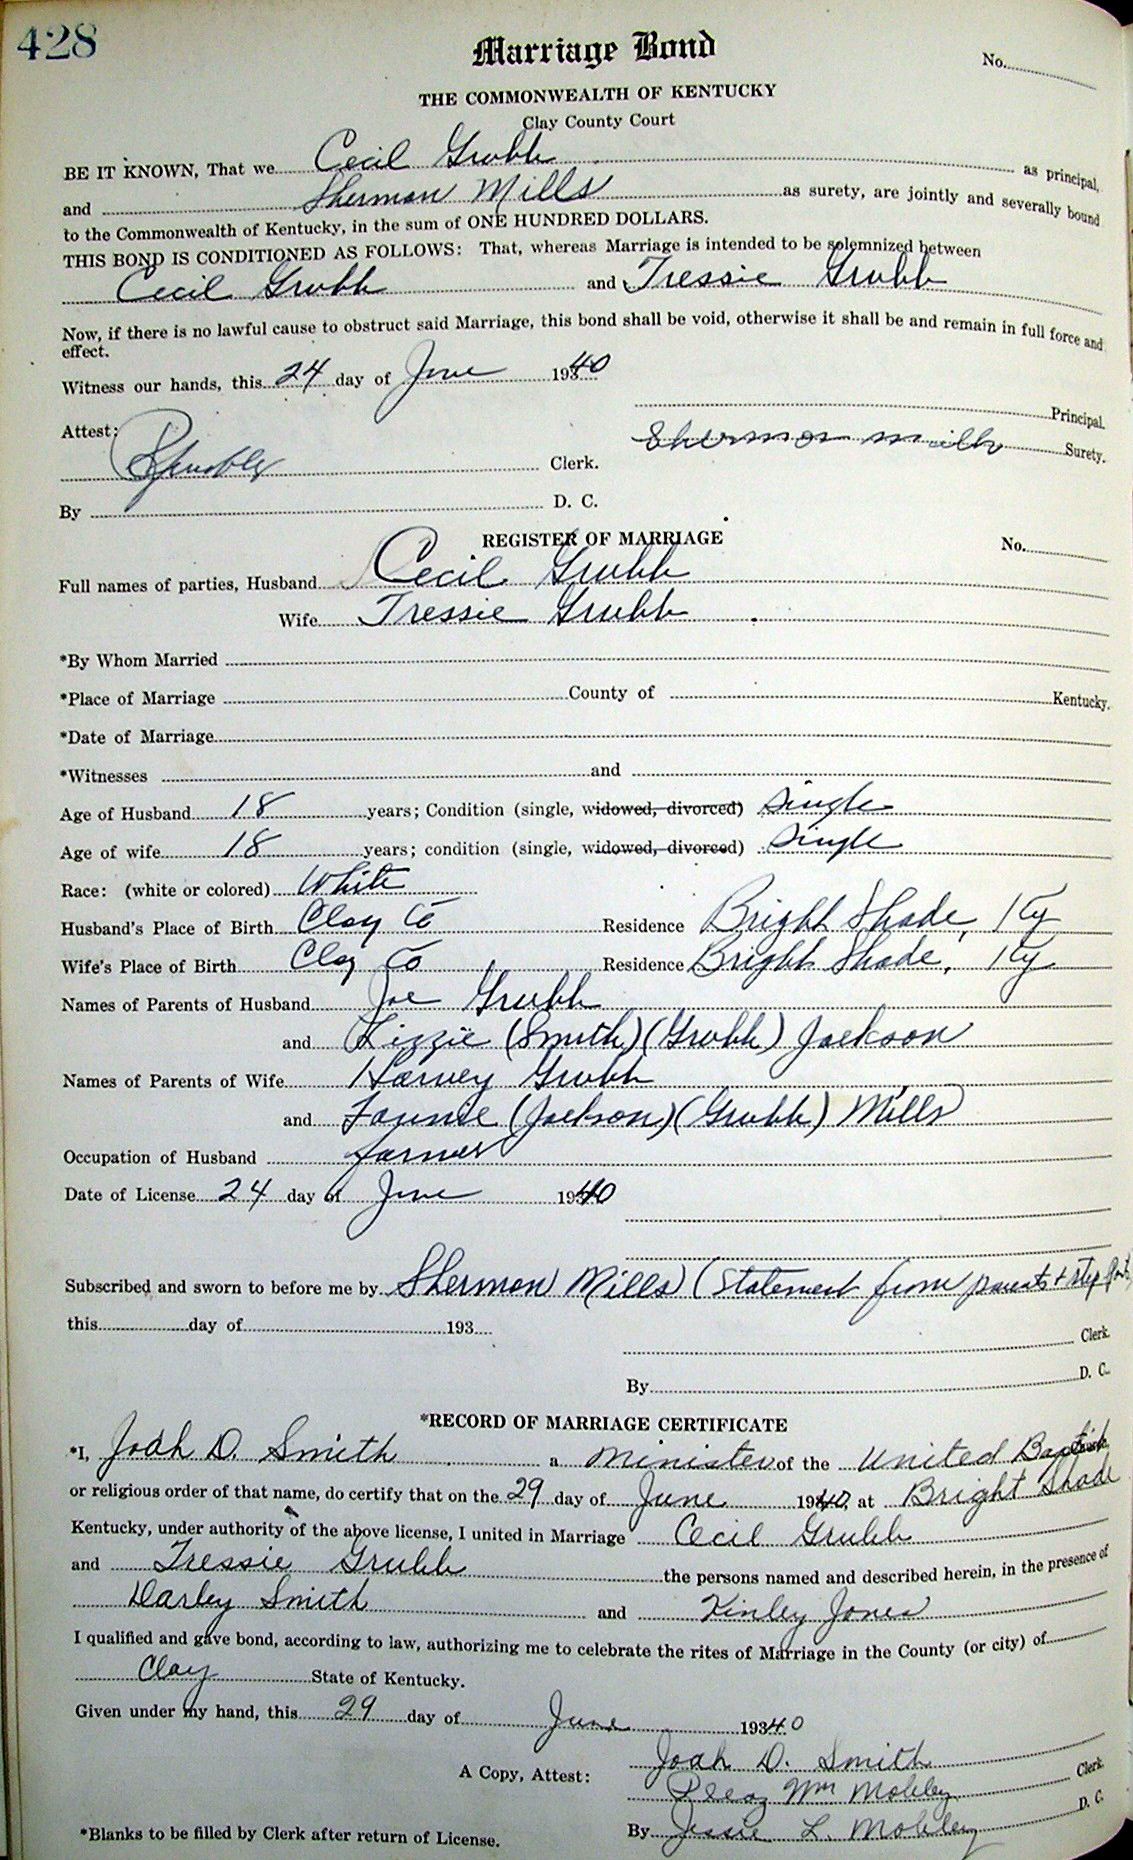 428
Marriage Bond
No.
THE COMMONWEALTH OF KENTUCKY
Clay County Court
BE IT KNOWN, That we Cecil Grubb as principal,
and Sherman Mills as surety, are jointly and severally bound
to the Commonwealth of Kentucky, in the sum of ONE HUNDRED DOLLARS.
THIS BOND IS CONDITIONED AS FOLLOWS: That, whereas Marriage is intended to be solemnized between
Cecil Grubb and Tressie Grubb
Now, if there is no lawful cause to obstruct said Marriage, this bond shall be void, otherwise it shall be and remain in full force and
effect.
Witness our hands, this 24 day of June 1940
Principal.
Attest: Sherman Mills Surety.
Clerk.
By D. C.
REGISTER OF MARRIAGE
No.
Full names of parties, Husband Cecil Grubb
Wife Tressie Grubb
*By Whom Married
*Place of Marriage County of Kentucky.
*Date of Marriage
*Witnesses and
Age of Husband 18 years; Condition (single, widowed, divorced) Single
Age of wife 18 years; condition (single, widowed, divorced) Single
Race: (white or colored) White
Husband's Place of Birth Clay Co Residence Bright Shade, Ky
Wife's Place of Birth Clay Co Residence Bright Shade, Ky
Names of Parents of Husband Joe Grubb
and Lizzie (Smith) (Grubb) Jackson
Names of Parents of Wife Harvey Grubb
and Fannie (Jackson) (Grubb) Mills
Occupation of Husband farmer
Date of License 24 day of June 1940
Subscribed and sworn to before me by Sherman Mills (Statement from parents & step
this day of 193
Clerk.
By D. C.
*RECORD OF MARRIAGE CERTIFICATE
*I, Joah D. Smith a Minister of the United Baptist Church,
or religious order of that name, do certify that on the 29 day of June 1940, at Bright Shade
Kentucky, under authority of the above license, I united in Marriage Cecil Grubb
and Tressie Grubb the persons named and described herein, in the presence of
Darley Smith and Finley Jones
I qualified and gave bond, according to law, authorizing me to celebrate the rites of Marriage in the County (or city) of
Clay State of Kentucky.
Given under my hand, this 29 day of June 1940
Joah D. Smith
A Copy, Attest: Wm Mobley Clerk
*Blanks to be filled by Clerk after return of License. By Jessie L. Mobley D. C.